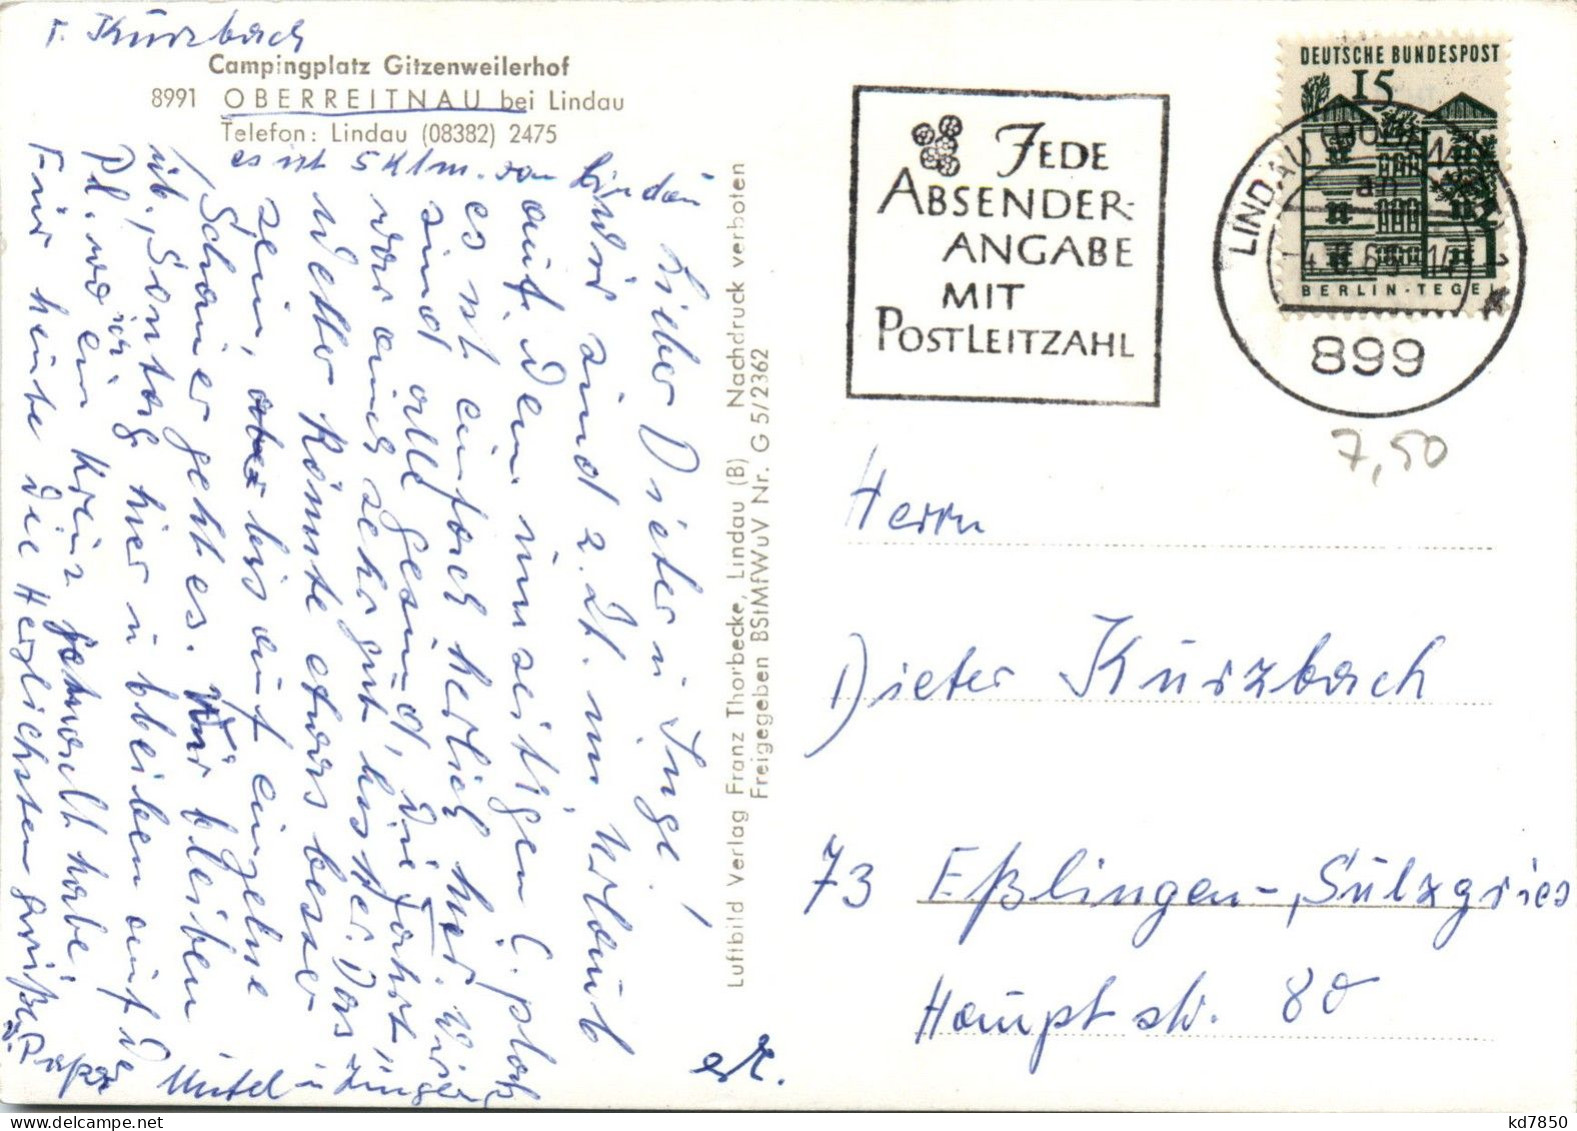 F. Kurzbach
Campingplatz Gitzenweilerhof
8991 OBERREITNAU bei Lindau
Telefon: Lindau (08382) 2475
es ist 5 klm. von Lindau
Lieber Dieter u Inge!
Wir sind z. Zt. im Urlaub
auf dem umseitigen C. platz
es ist einfach herlich hier. Wir
sind alle gesund, die Fahrt
war auch sehr gut bisher. Das
Wetter könnte etwas besser
sein, aber bis auf einzelne
Schauer geht es. Wir bleiben
üb. Sontag hier u bleiben auf de
Pl. wo ich ein Kreuz gemacht habe.
Für heute die Herzlichsten Grüße
Papa Mutel u
Luftbild Verlag Franz Thorbecke, Lindau (B) Nachdruck verboten
Freigegeben BStMfWuV Nr. G 5/2362
JEDE
ABSENDER-
ANGABE
MIT
POSTLEITZAHL
DEUTSCHE BUNDESPOST
15
BERLIN-TEGEL
LINDAU (BODENSEE)
899
7,50
Herrn
Dieter Kurzbach
73 Eßlingen-, Sulzgries
Hauptstr. 80
kd7850